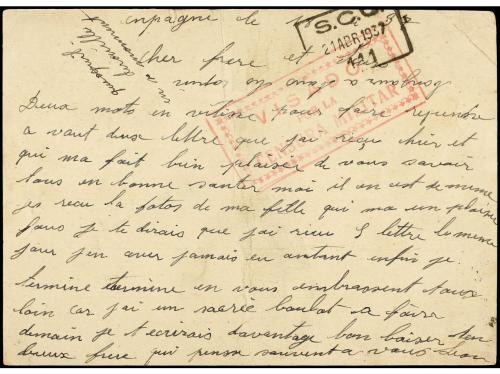 S.C.C.
21 ABR 1937
111
VISADO
POR LA
CENSURA MILITAR
cher frere et
Deux mots en vitesse pour faire reponde
a vaut deux lettre que j'ai reçu hier et
qui ma fait bien plaisir de vous savoir
tous en bonne santer moi il en est de meme
jes recu la fotos de ma fille qui ma un plaise
fous je te dirais que jai recu 5 lettre le meme
jour jen aver jamais eu autant enfin je
termine termine en vous embrassent tous
loin car jai un sacrée boulot a faire
demain je t ecrirais davantage bon baiser ton
frere qui pense souvent a vous